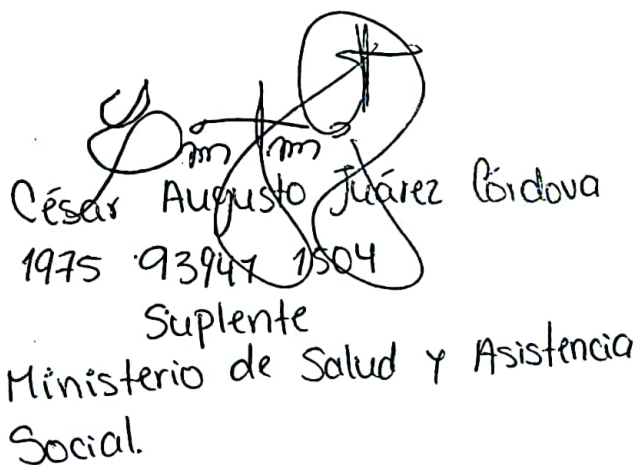 César Augusto Juárez Córdova
1975 93947 1504
Suplente
Ministerio de Salud y Asistencia
Social.